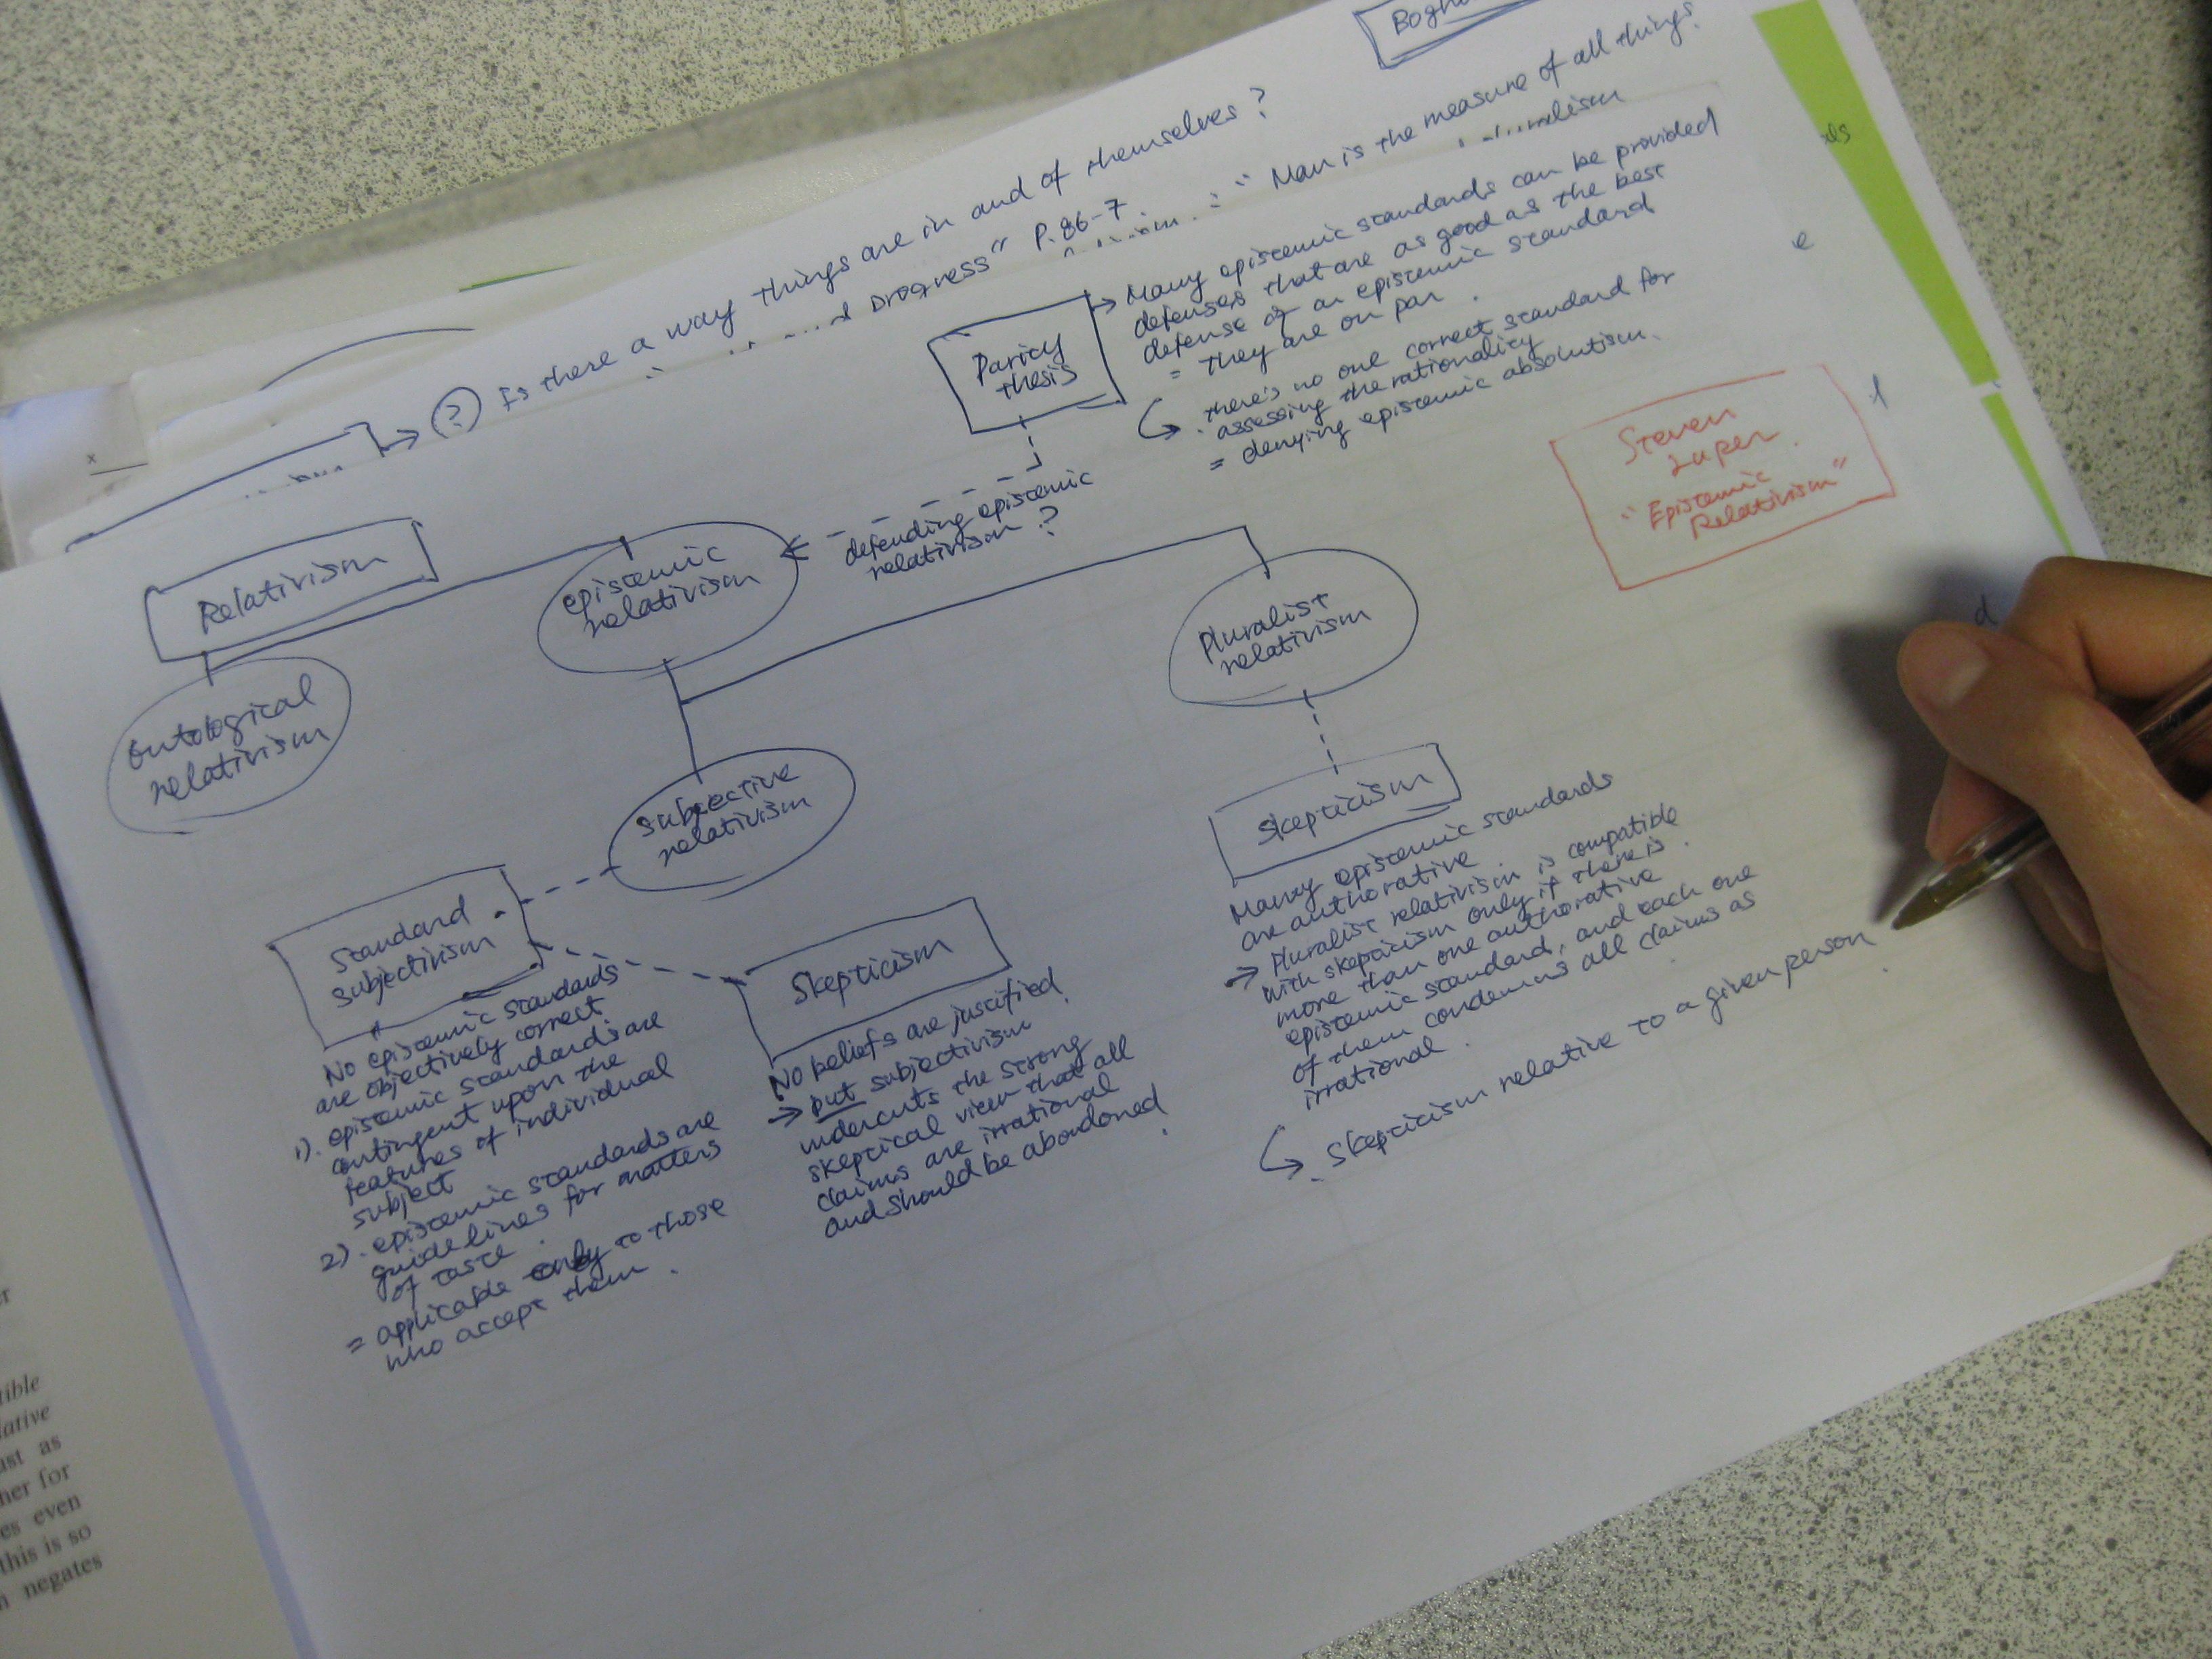 Is there a way things are in and of themselves?
progress" P.86-7
: " Man is the measure of all things.
Parity
thesis
→ Many epistemic standards can be provided
defenses that are as good as the best
defense of an epistemic standard
= They are on par.
there's no one correct standard for
assessing the rationality
= denying epistemic absolutism.
Steven
Luper.
"Epistemic
Relativism"
Relativism
epistemic
relativism
defending epistemic
relativism?
Pluralist
relativism
Ontological
relativism
subjective
relativism
Standard
subjectivism
No epistemic standards
are objectively correct
1). epistemic standards are
contingent upon the
features of individual
subject
2). epistemic standards are
guidelines for matters
of taste.
= applicable only to those
who accept them.
Skepticism
No beliefs are justified.
→ but subjectivism
undercuts the strong
skeptical view that all
claims are irrational
and should be abandoned.
Skepticism
Many epistemic standards
are authorative
→ Pluralist relativism is compatible
with skepticism only if there is
more than one authorative
epistemic standard, and each one
of them condemns all claims as
irrational.
Skepticism relative to a given person.
tible
lative
ast as
her for
es even
this is so
negates